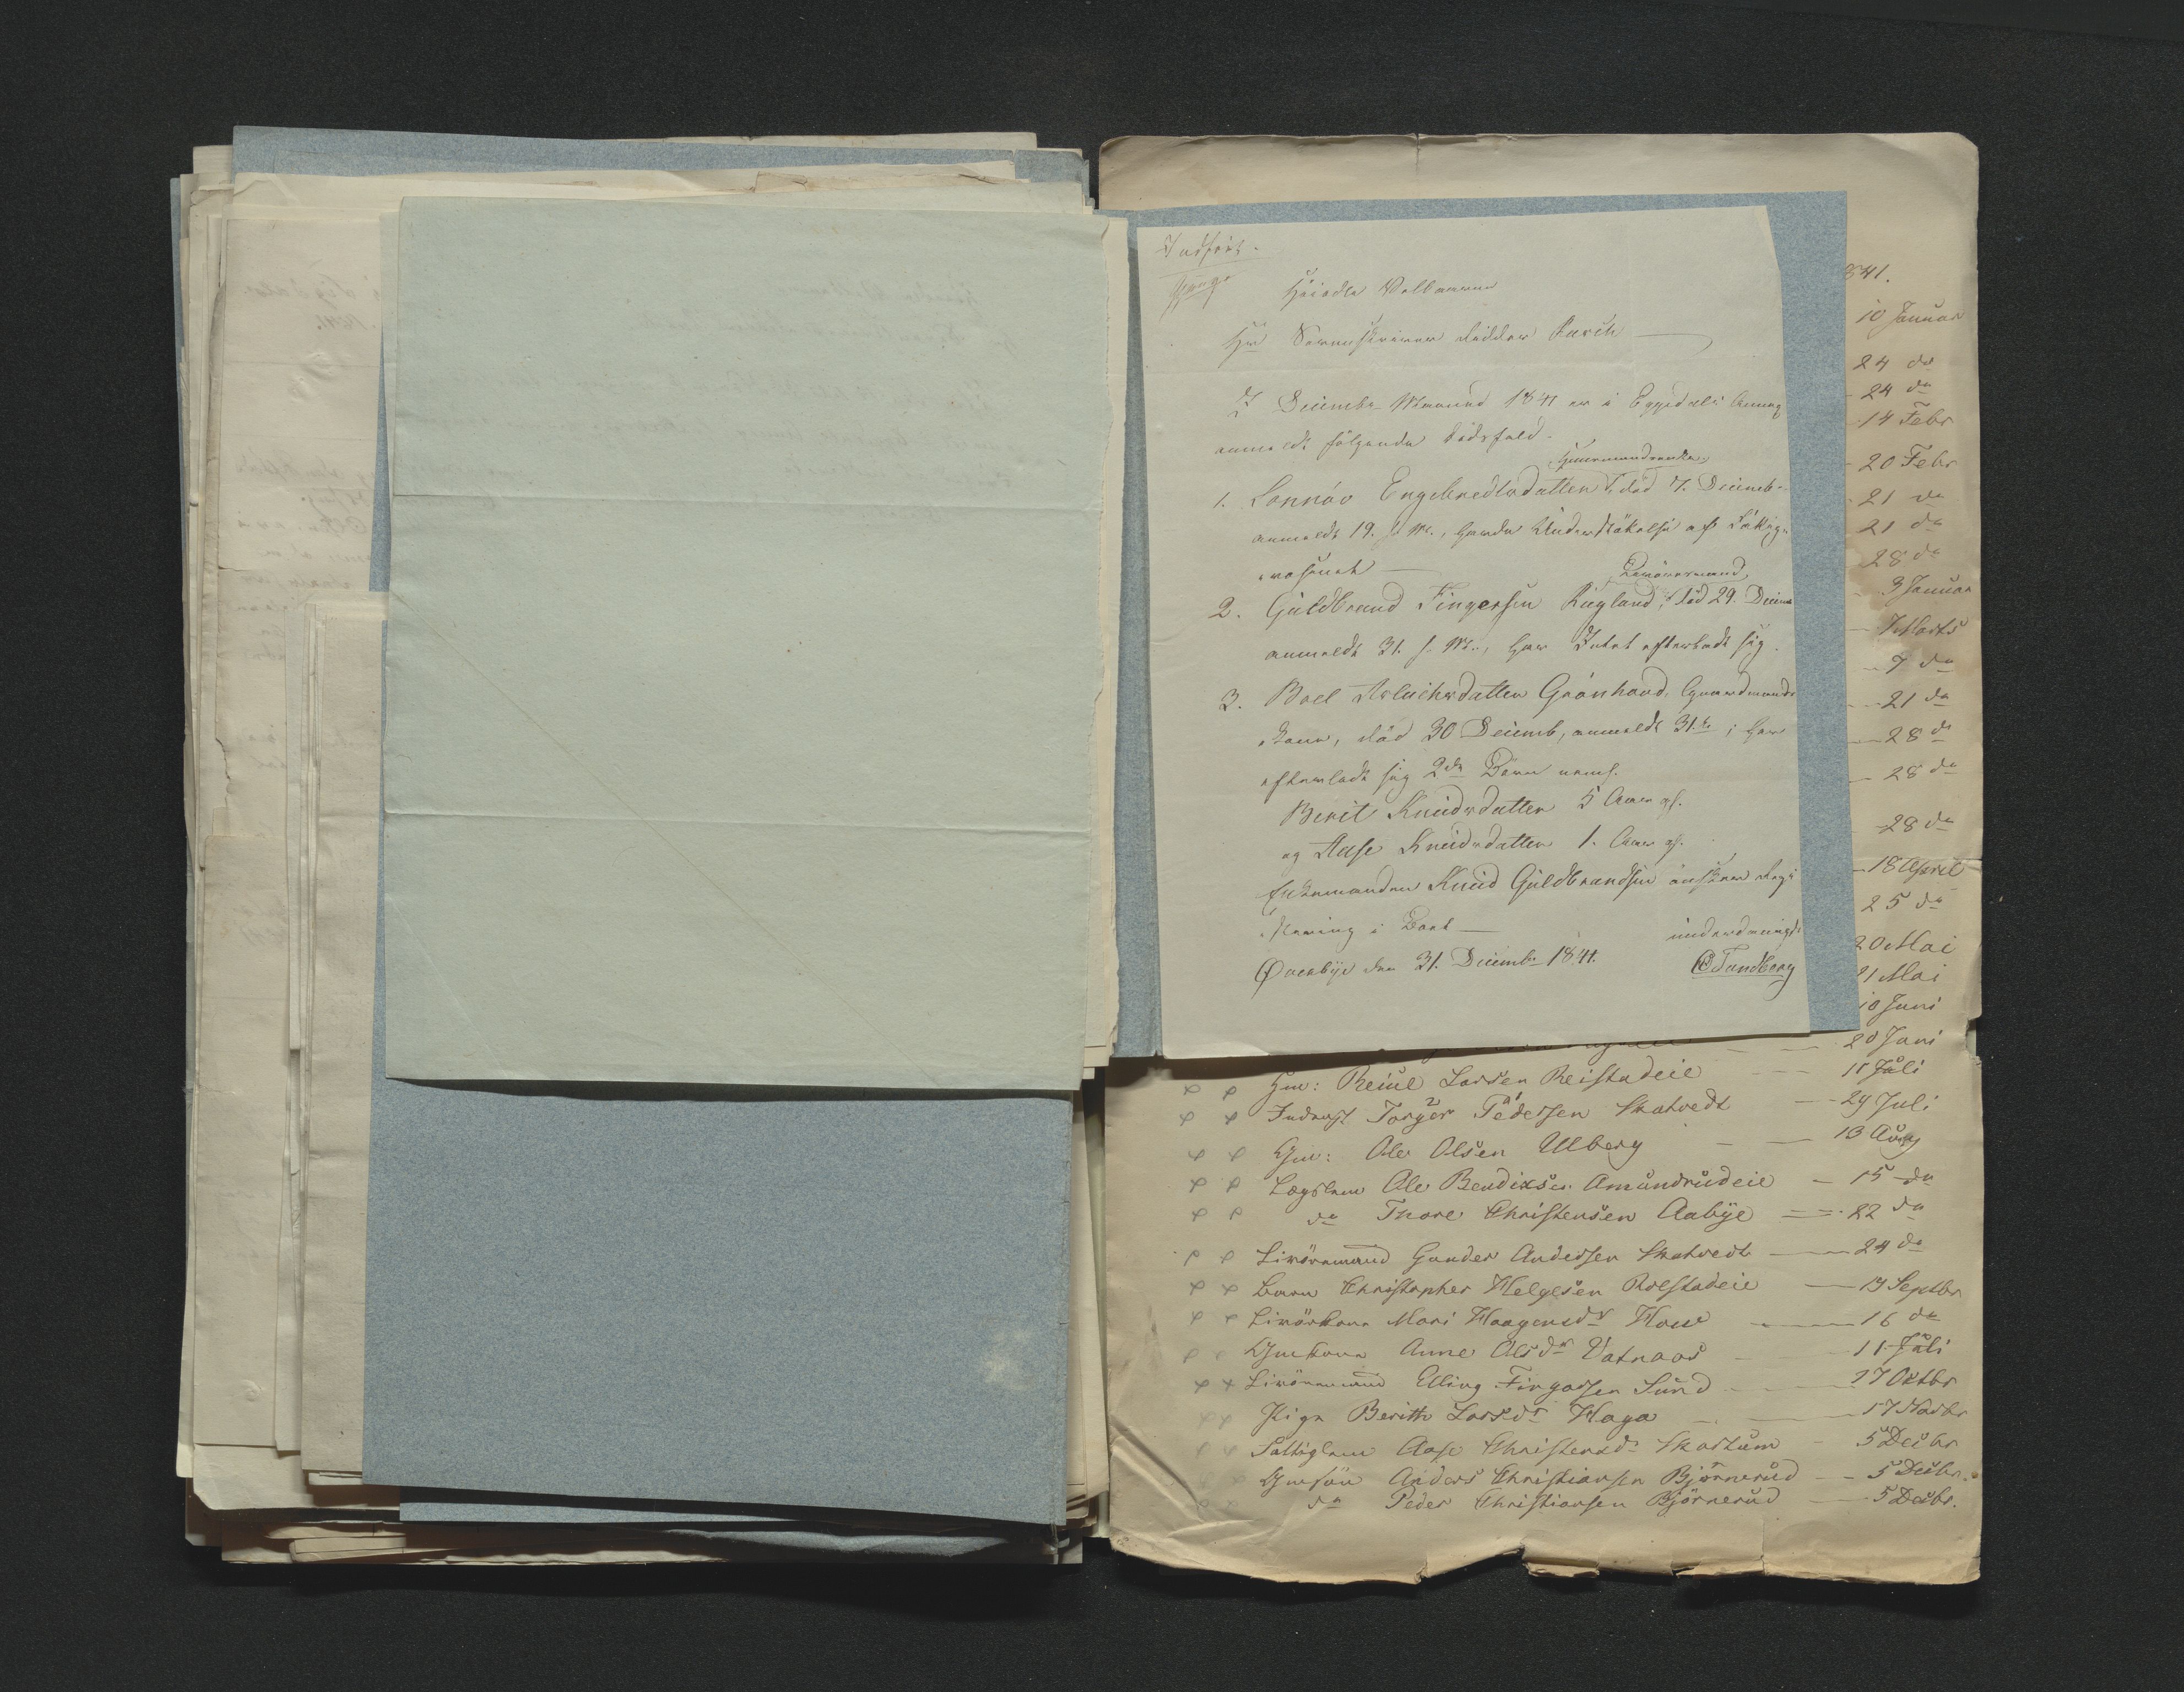 Indført.
Høiædle Velbaarne
Hr Sorenskriver Ridder 
I Decembr Maaned 1841 er i Eggedals Annex
anmeldt følgende Dødsfald.
1. Lonnøv Engebredtsdatter
Huusmandsenke, død 7. Decemb.
anmeldt 19. s. M., havde Understøttelse af Fattig-
væsenet
2. Guldbrand Fingersen Rugland, Livøresmand, død 29. Decemb
anmeldt 31. s. M., har Intet efterladt sig.
3. Boel Aslachsdatter Grønhovd, Gaardmands
kone, død 30 Decemb, anmeldt 31te, har
efterladt sig 2de Børn neml.
Berit Knudsdatter 5 Aar gl.
og Aase Knudsdatter 1. Aar gl.
Enkemanden Knud Guldbrandsen ønsker Regi-
strering i Boet
underdanigst
Øverbye den 31. Decembr 1841.
Tandberg
841.
10 Januar
24 do
24 do
14 Febr
20 Febr
21 do
21 do
28 do
3 Januar
7 Marts
7 do
21 do
28 do
28 do
28 do
18 April
25 do
20 Mai
21 Mai
10 Juni
20 Juni
Hm: Reiul Larsen Reistadeie 11 Juli
Inderst Torger Pedersen Skatvedt 29 Juli
Gm: Ole Olsen Ulberg 13 Aug
Lægslem Ole Bendixsen Amundrudeie 15 do
do Thore Christensen Aabye 22 do
Livøremand Gunder Andersen Skatvedt 24 do
Barn Christopher Helgesen Rolstadeie 13 Septbr
Livørkone Mari Haagensdr 16 do
Gmkone Anne Olsdr Vatnaas 11 Juli
Livøremand Elling Fingarsen Lund 27 Oktbr
Pige Berith Larsdr Haga 17 Novbr
Fattiglem Aase Christensdr Skartum 5 Decbr
Gmsøn Anders Christiansen Bjørnerud 5 Decbr.
do Peder Christiansen Bjørnerud 5 Decbr.